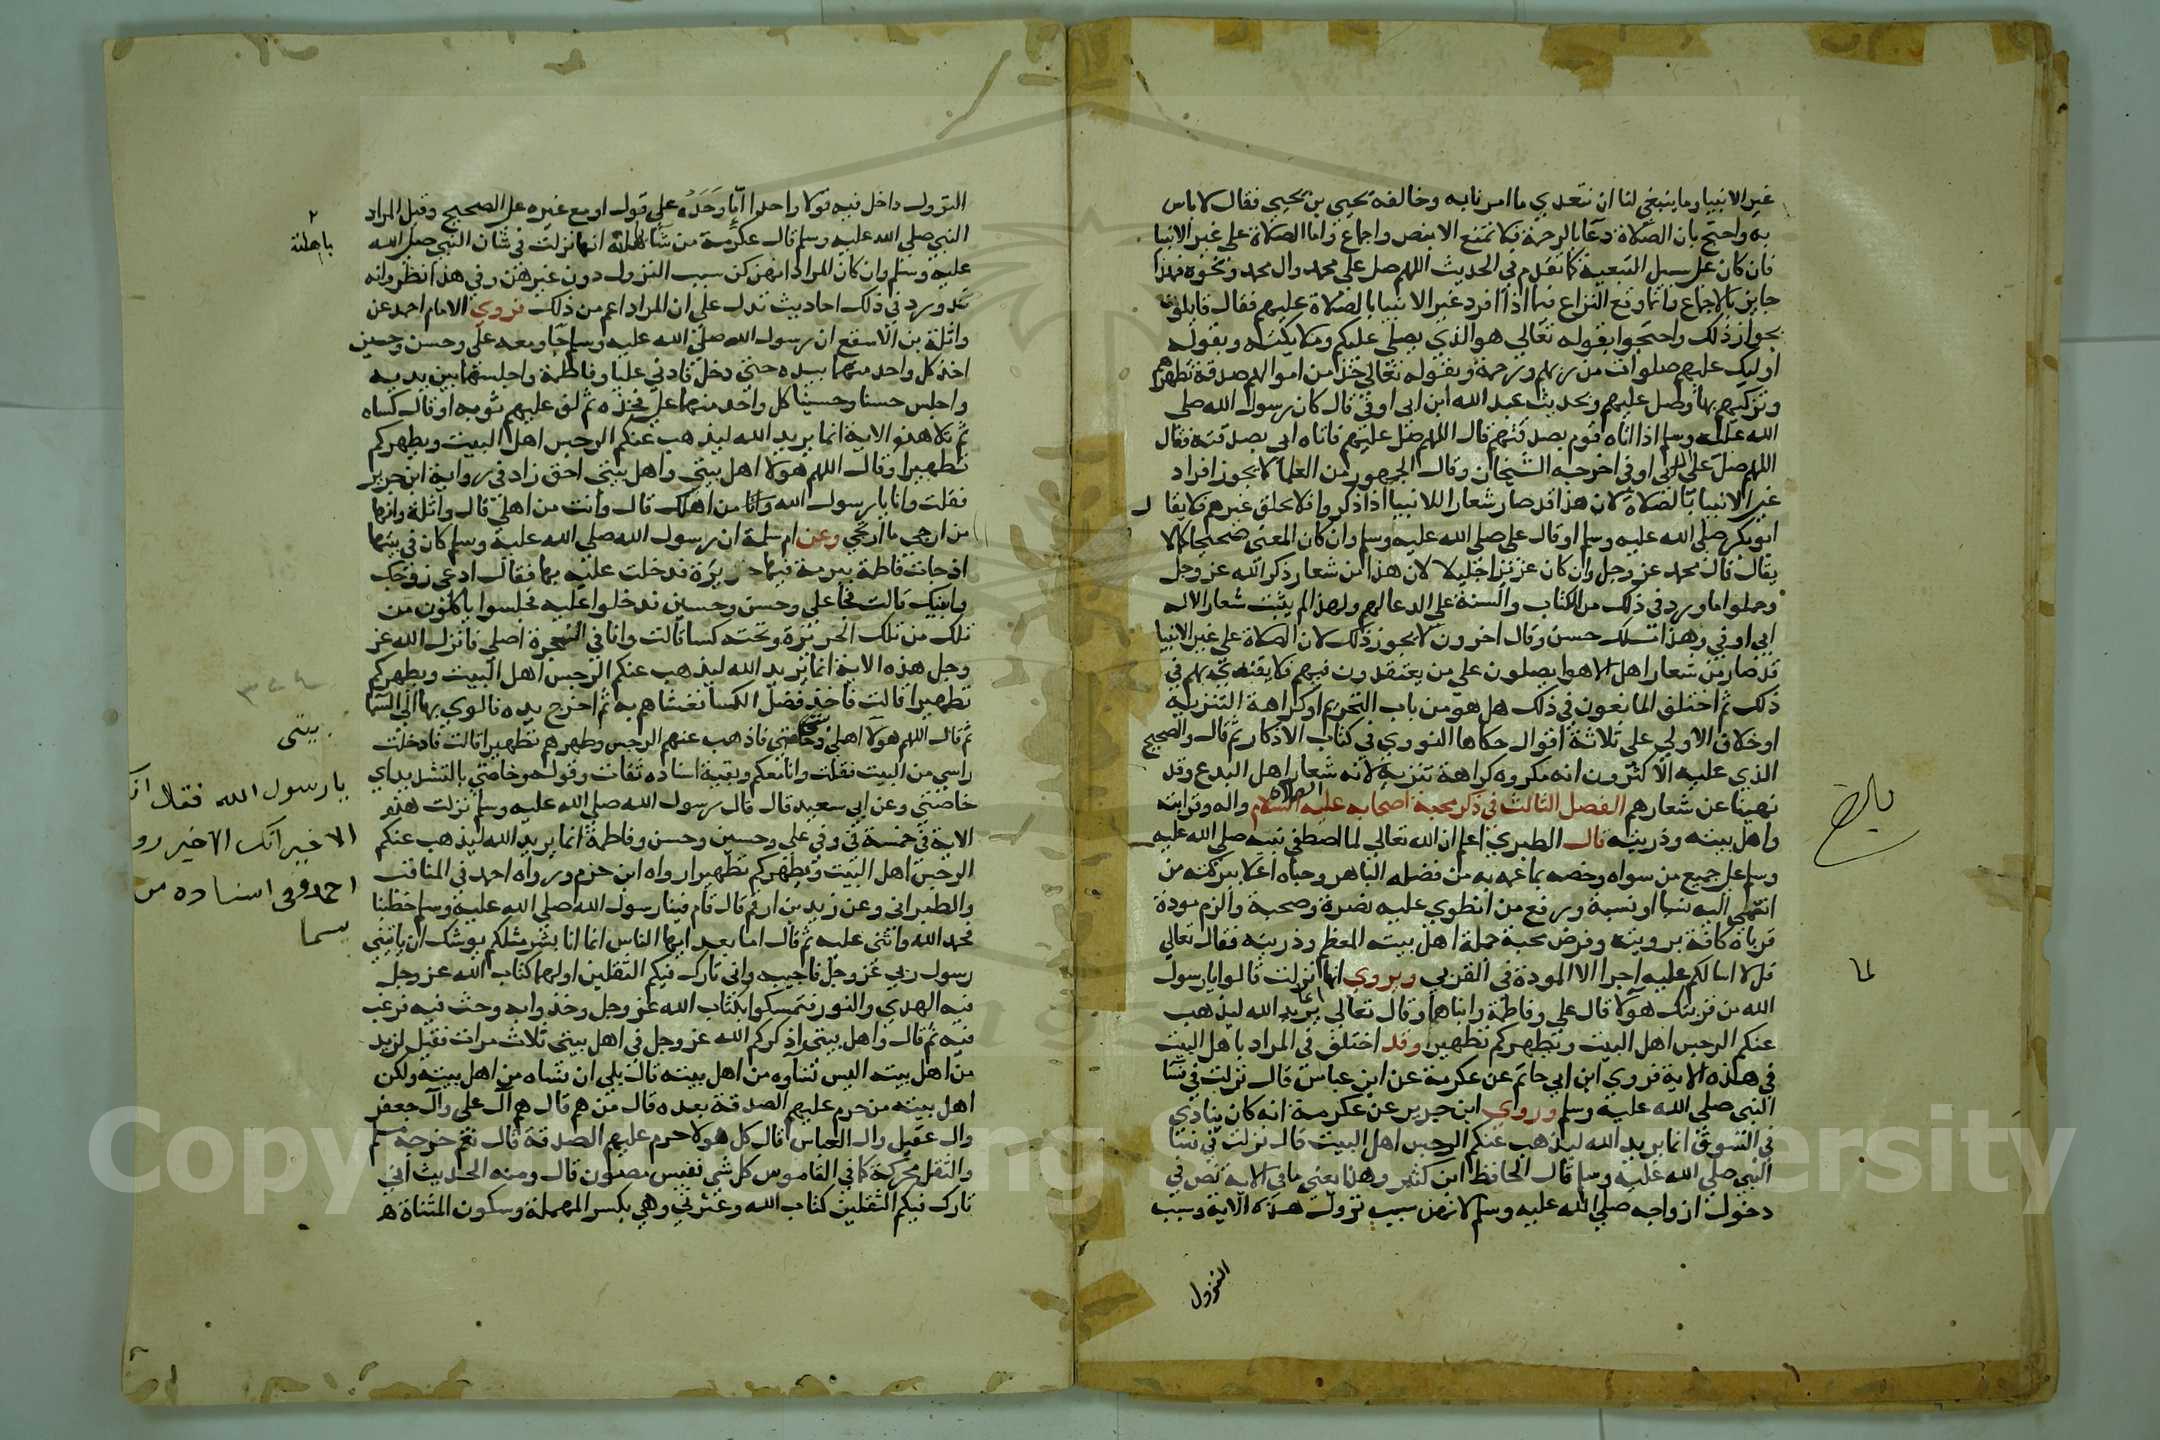 غير الانبيا وما ينبغي لنا ان نتعدي ما امرنا به وخالفه يحيي بن يحيي فقال لا باس
به واحتج بان الصلاة دعا بالرحمة فلا تمنع الا بنص واجماع واما الصلاة على غير الانبيا
فان كان على سبيل التبعية كما تقدم في الحديث اللهم صل على محمد وال محمد ونحوه فهذا
جايز بالاجماع وانما وقع النزاع فيما اذا افرد غير الانبيا بالصلاة عليهم فقال قايلون
بجواز ذلك واحتجوا بقوله تعالي هو الذي يصلي عليكم وملايكته وبقوله
اوليك عليهم صلوات من ربهم ورحمة وبقوله تعالي خذ من اموالهم صدقة تطهرهم
وتزكيهم بها وصل عليهم وبحديث عبد الله ابن ابي اوفى قال كان رسول الله صلى
الله عليه وسلم اذا اتاه قوم بصدقتهم قال اللهم صل عليهم فاتاه ابي بصدقته فقال
اللهم صل على ال ابي اوفى اخرجه الشيخان وقال الجمهور من العلما لا يجوز افراد
غير الانبيا بالصلاة لان هذا قد صار شعارا للانبيا اذا ذكروا فلا يلحق غيرهم فلا يقال
ابو بكر صلى الله عليه وسلم او قال على صلى الله عليه وسلم وان كان المعنى صحيحا كما لا
يقال قال محمد عز وجل وان كان عزيزا جليلا لان هذا من شعار ذكر الله عز وجل
وحملوا ما ورد في ذلك من الكتاب والسنة على الدعا لهم ولهذا لم يثبت شعارا لال
ابي اوفي وهذا مسلك حسن وقال اخرون لا يجوز ذلك لان الصلاة على غير الانبيا
قد صار من شعار اهل الاهوا يصلون على من يعتقدون فيهم فلا يقتدى بهم في
ذلك ثم اختلف المانعون في ذلك هل هو من باب التحريم او كراهة التنزيه
او خلاف الاولي على ثلاثة اقوال حكاها النووي في كتاب الاذكار ثم قال والصحيح
الذي عليه الاكثرون انه مكروه كراهة تنزيه لانه شعار اهل البدع وقد
نهينا عن شعارهم الفصل الثالث في ذكر محبة اصحابه عليه الصلاة السلام واله وقرابته
واهل بيته وذريته قال الطبري اعلم ان الله تعالي لما اصطفي نبيه صلى الله عليه
وسلم على جميع من سواه وخصه بما عمه به من فضله الباهر وحباه اعلا ببركته من
انتمى اليه نسبا او نسبة ورفع من انطوي عليه نصرة وصحبة والزم مودة
قرباه كافة بريته وفرض محبة جملة اهل بيته المعظم وذريته فقال تعالي
قل لا اسالكم عليه اجرا الا المودة في القربي ويروي انها لما نزلت قالوا يا رسول
الله من قرابتك هولا قال علي وفاطمة وابناهما وقال تعالي انما يريد الله ليذهب
عنكم الرجس اهل البيت ويطهركم تطهيرا وقد اختلف في المراد باهل البيت
في هذه الاية فروي ابن ابي حاتم عن عكرمة عن ابن عباس قال نزلت في نسا
النبي صلى الله عليه وسلم وروي ابن جرير عن عكرمة انه كان ينادي
في السوق انما يريد الله ليذهب عنكم الرجس اهل البيت قال نزلت في نسا
النبي صلى الله عليه وسلم قال الحافظ ابن كثير وهذا يعني ما في الاية نص في
دخول ازواجه صلى الله عليه وسلم لانهن سبب نزول هذه الاية وسبب
النزول
لما
النزول داخل فيه قولا واحدا اما وحده على قول او مع غيره على الصحيح وقيل المراد
النبي صلى الله عليه وسلم قال عكرمة من شا باهلته انها نزلت في شان النبي صلى الله
عليه وسلم وان كان المراد انهن كن سبب النزول دون غيرهن وفي هذا نظر وانه
قد ورد في ذلك احاديث تدل على ان المراد اعم من ذلك فروي الامام احمد عن
واثلة بن الاسقع ان رسول الله صلى الله عليه وسلم جا ومعه على وحسن وحسين
اخذ كل واحد منهما بيده حتى دخل فادني عليا وفاطمة واجلسهما بين يديه
واجلس حسنا وحسينا كل واحد منهما على فخذه ثم لف عليهم ثوبه او قال كساه
ثم تلا هذه الاية انما يريد الله ليذهب عنكم الرجس اهل البيت ويطهركم
تطهيرا وقال اللهم هولا اهل بيتي واهل بيتي احق زاد في رواية ابن جرير
فقلت وانا يا رسول الله وانا من اهلك قال وانت من اهلي قال واثلة وانها
من ارجي ما ارتجي وعن ام سلمة ان رسول الله صلى الله عليه وسلم كان في بيتها
اذ جات فاطمة ببرمة فيها خزيرة فدخلت عليه بها فقال ادعي زوجك
وابنيك قالت فجا على وحسن وحسين فدخلوا عليه فجلسوا ياكلون من
تلك من تلك الخزيرة وتحته كسا قالت وانا في الحجرة اصلي فانزل الله عز
وجل هذه الاية انما يريد الله ليذهب عنكم الرجس اهل البيت ويطهركم
تطهيرا قالت فاخذ فضل الكسا فغشاهم به ثم اخرج يده فالوي بها الى السما
ثم قال اللهم هولا اهل وخاصتي فاذهب عنهم الرجس وطهرهم تطهيرا قالت فادخلت
راسي من البيت فقلت وانا معكم وبقية اسناده ثقات وقوله وخاصتي بالتشديد اي
خاصتي وعن ابي سعيد قال قال رسول الله صلى الله عليه وسلم نزلت هذه
الاية في خمسة في وفي علي وحسين وحسن وفاطمة انما يريد الله ليذهب عنكم
الرجس اهل البيت ويطهركم تطهيرا رواه ابن جرير ورواه احمد في المناقب
والطبراني وعن زيد بن ارقم قال قام فينا رسول الله صلى الله عليه وسلم خطيبا
فحمد الله واثنى عليه ثم قال اما بعد ايها الناس انما انا بشر مثلكم يوشك ان ياتيني
رسول ربي عز وجل فاجيبه واني تارك فيكم الثقلين اولهما كتاب الله عز وجل
فيه الهدي والنور فتمسكوا بكتاب الله عز وجل وخذوا به وحث فيه ورغب
فيه ثم قال واهل بيتي اذكركم الله عز وجل في اهل بيتي ثلاث مرات فقيل لزيد
من اهل بيته اليس نساوه من اهل بيته قال بلى ان نساه من اهل بيته ولكن
اهل بيته من حرم عليهم الصدقة بعده قال من هم قال هم آل على وآل جعفر
وال عقيل وال العباس قال كل هولا حرم عليهم الصدقة قال نعم خرجه مسلم
والثقل محركة كما في القاموس كل شي نفيس مصون قال ومنه الحديث اني
تارك فيكم الثقلين كتاب الله وعترتي وهي بكسر المهملة وسكون المثناة
٢
باهلته
بيتى
يا رسول الله فقال انك
الا خير انك الا خير رو
احمد وفى اسناده من
يسما
Copyright © King Saud University